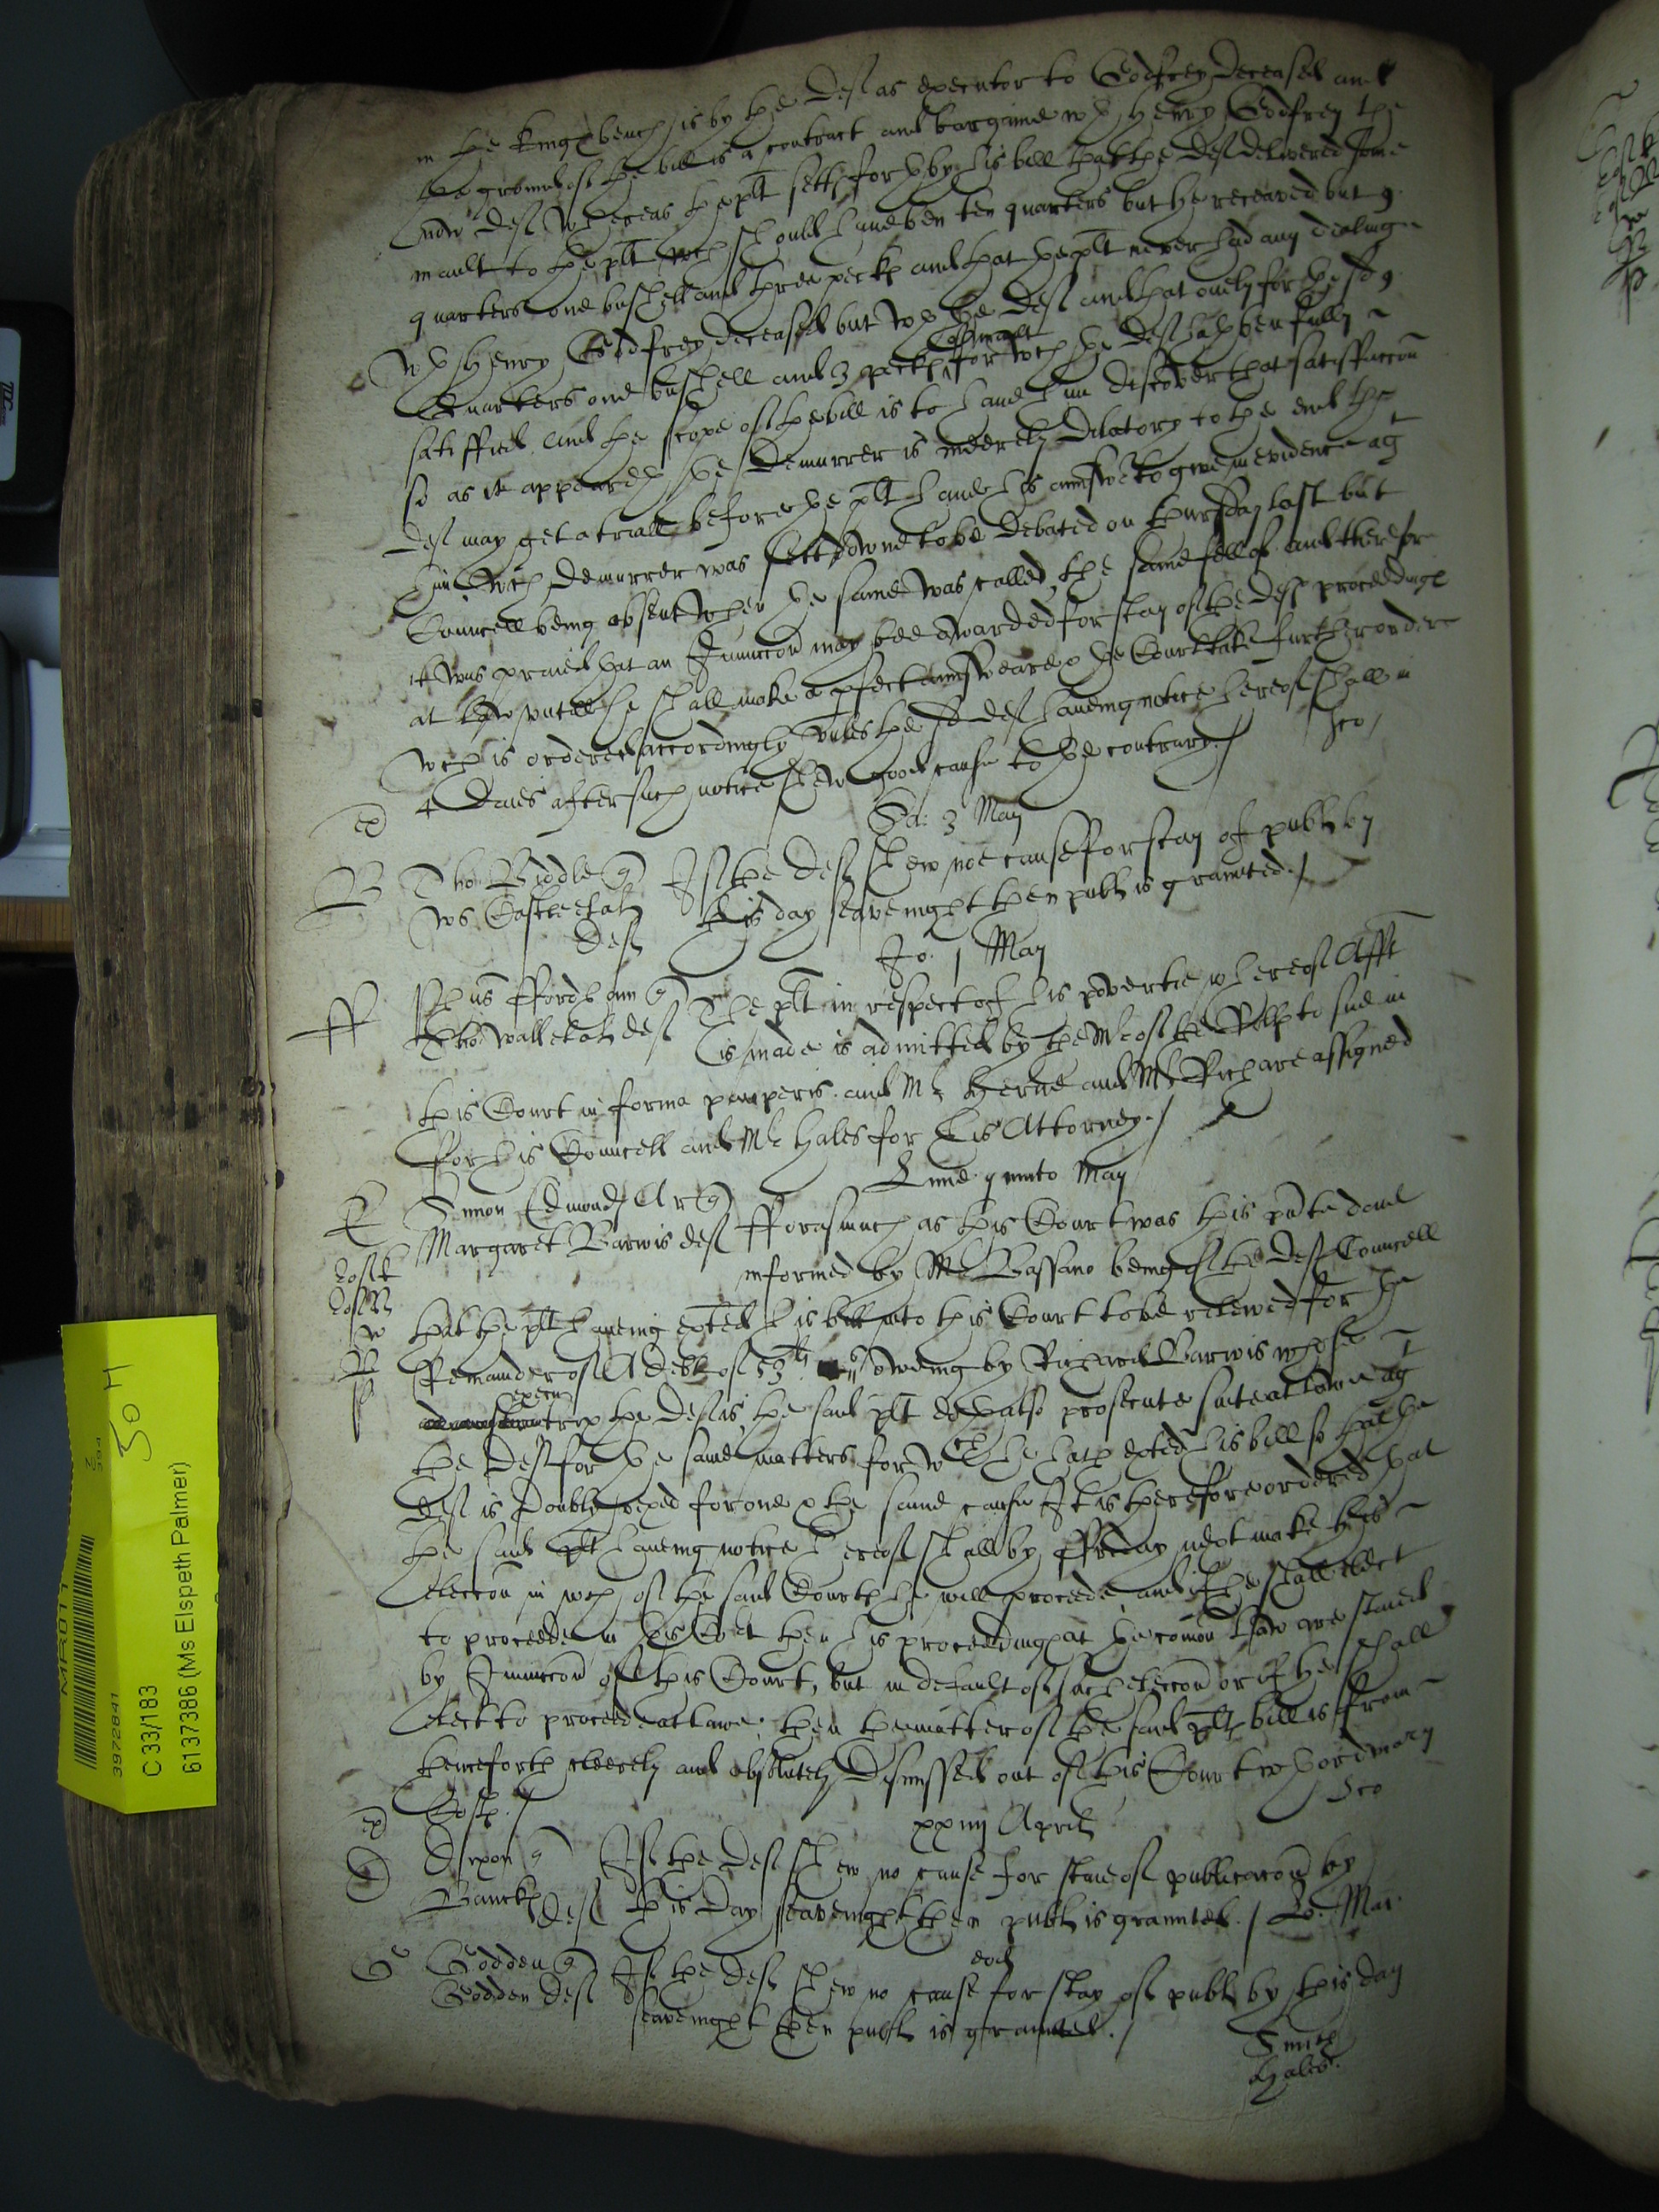 in the Kings bench is by the deft as executor to Godfrey deceased and
the ground of the bill is a contract and bargaine wth Henry Godfrey the
now deft whereas the plt setts forth by his bill that the deft delivered some
mault to the plt wch should have ben ten quarters but he receaved but 9
quarters one bushell and three peckes and that the plt never had any dealing
wth Henry Godfrey deceased but wth the deft and that onely for the sd 9
quarters one bushell and 3 peckes of mault for wch the deft hath ben fully
satisfied and the scope of the bill is to have him discover that satisfaccon
so as it appeareth the demurrer is meerely dilatory to the end the
deft may get a triall before the plt have his answe to give in evidence agt
him wch demurrer was sett downe to be debated on thursday last but
Councell being absent when the same was called the same fell of and therefore
it was praied that an Iniunccon may bee awarded for stay of the defts proceedings
at law untill he shall make a pfect answeare & the Court take further order
wch is ordered accordingly unles the sd deft haveing notice hereof shall in
4 daies after such notice shew good cause to the contrary /
Sco /
ex
Sa: 3 May
B Tho: Biddle q If the deft shew noe cause for stay of publ by
Ws Castle et al deft this day seavenight then publ is graunted /
Jo: 1 May
ff ffordham q The plt in respect of his povertie whereof Afft
Tho: Wall et al deft is made is admitted by the Mr of the Rolls to sue in
this Court in forma pauperis and Mr Herne and Mr Rich are assigned
for his Councell and Mr Hales for his Attorney /
Lune quinto May
E Simon Edmonds Ar q
Margaret Barwis deft fforasmuch as this Court was this pnte daie
informed by Mr Bassano being of the defts Councell
that the plt haveing exted his bill into this Court to be releived for the
Remainder of A debt of 53li oweing by Richard Barwis whose
execu trix the deft is, the said plt doth also prosecute suite at lawe agt
the deft for the same matters for wch he hath exted his bill so that the
deft is doubly vexed for one & the same cause It is therefore ordered that
the said plt haveing notice hereof shall by ffryday next make his
eleccon in wch of the said Courtes he will proceede, and if he shall elect
to proceede in this Cort then his proceedings at the comon Law are staied
by Iniunccon of this Court, but in default of such eleccon or if he shall
elect to proceede at lawe, then the matter of the said plts bill is from
henceforth cleerely and absolutely dismissed out of this Court wth ordinary
Costes /
Sco
ex
xxiiij Aprilis
D Dixon q If the deft shew no cause for staie of publicacon by
Banckes deft this day seavenight then publ is graunted / Le: Mar:
eod
G Godden q If the deft shew no cause for stay of publ by this day
Godden deft seavenight then publ is graunted /
Smith
Hales
MR011
3972841
C 33/183
6137386 (Ms Elspeth Palmer)
50 H